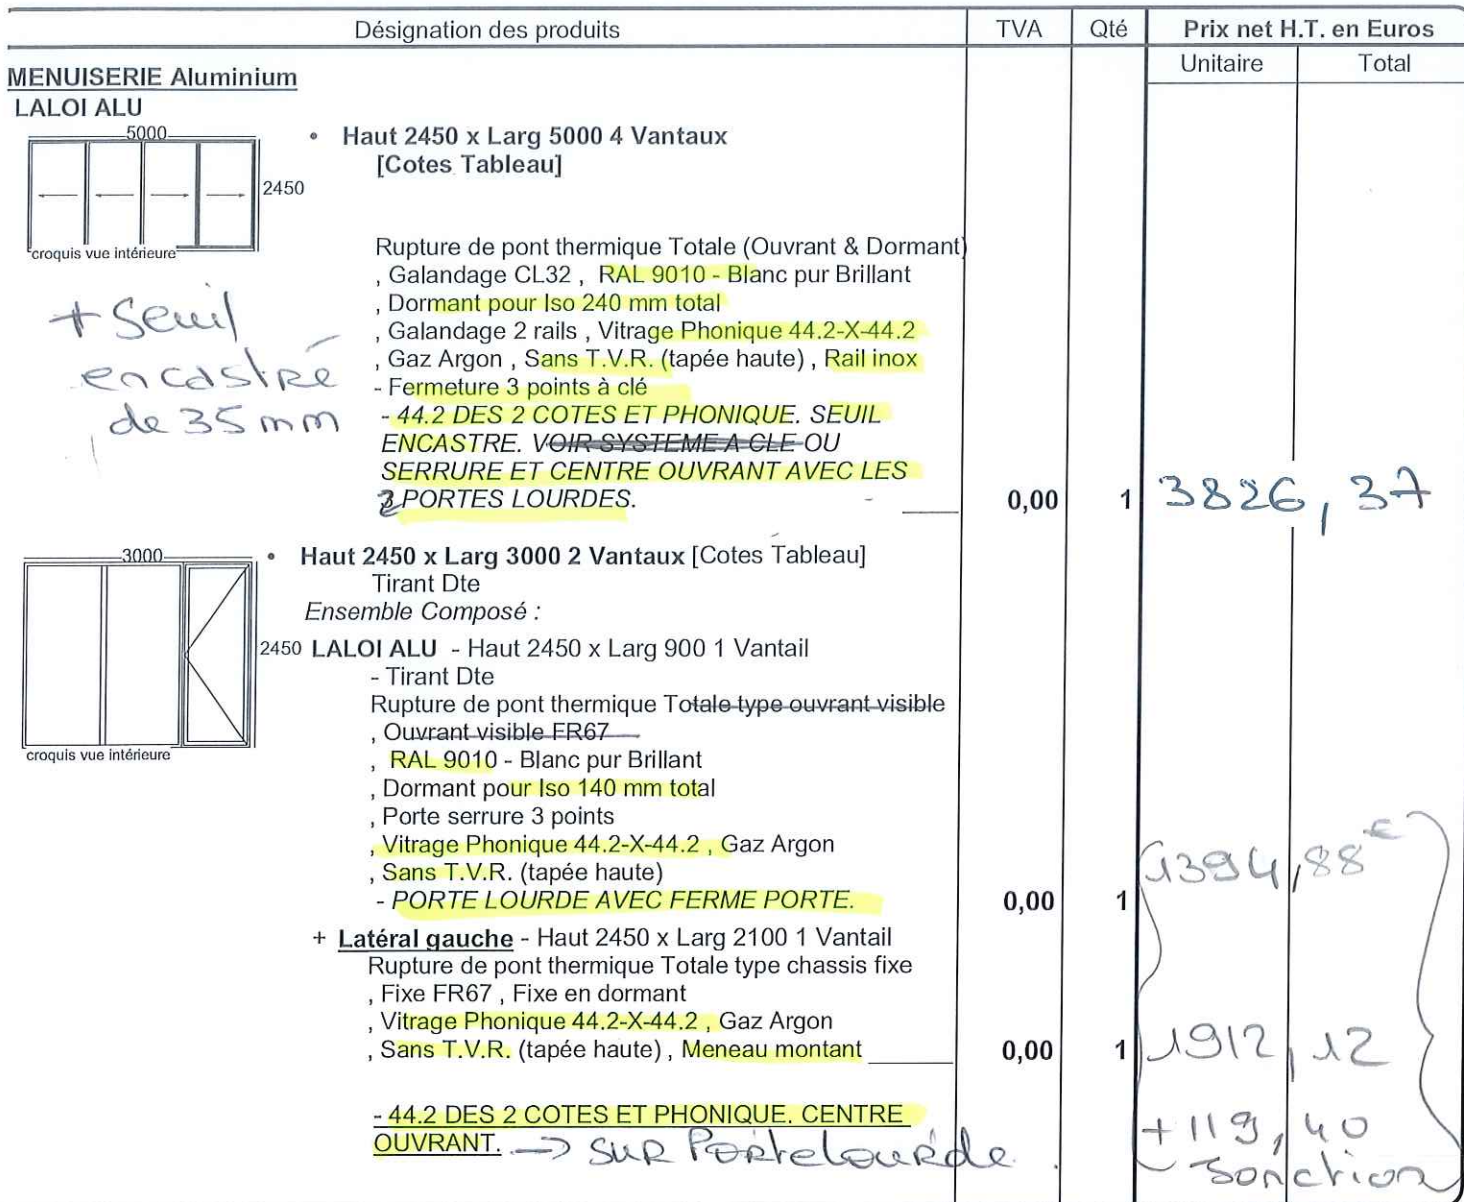 Désignation des produits TVA Qté Prix net H.T. en Euros
Unitaire Total
MENUISERIE Aluminium
LALOI ALU
5000
2450
croquis vue intérieure
• Haut 2450 x Larg 5000 4 Vantaux
[Cotes Tableau]
Rupture de pont thermique Totale (Ouvrant & Dormant)
, Galandage CL32 , RAL 9010 - Blanc pur Brillant
, Dormant pour Iso 240 mm total
, Galandage 2 rails , Vitrage Phonique 44.2-X-44.2
, Gaz Argon , Sans T.V.R. (tapée haute) , Rail inox
- Fermeture 3 points à clé
- 44.2 DES 2 COTES ET PHONIQUE. SEUIL
ENCASTRE. VOIR SYSTEME A CLE OU
SERRURE ET CENTRE OUVRANT AVEC LES
2 PORTES LOURDES. 0,00 1 3826,37
+ Seuil
encastré
de 35 mm
3000
2450
croquis vue intérieure
• Haut 2450 x Larg 3000 2 Vantaux [Cotes Tableau]
Tirant Dte
Ensemble Composé :
LALOI ALU - Haut 2450 x Larg 900 1 Vantail
- Tirant Dte
Rupture de pont thermique Totale type ouvrant visible
, Ouvrant visible FR67
, RAL 9010 - Blanc pur Brillant
, Dormant pour Iso 140 mm total
, Porte serrure 3 points
, Vitrage Phonique 44.2-X-44.2 , Gaz Argon
, Sans T.V.R. (tapée haute)
- PORTE LOURDE AVEC FERME PORTE. 0,00 1 1394,88 €
+ Latéral gauche - Haut 2450 x Larg 2100 1 Vantail
Rupture de pont thermique Totale type chassis fixe
, Fixe FR67 , Fixe en dormant
, Vitrage Phonique 44.2-X-44.2 , Gaz Argon
, Sans T.V.R. (tapée haute) , Meneau montant 0,00 1 1912,12
- 44.2 DES 2 COTES ET PHONIQUE. CENTRE
OUVRANT. → SUR Porte Lourde. +119,40
Jonction